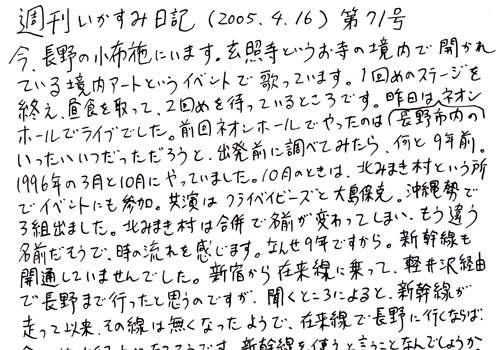 週刊いかすみ日記(2005.4.16)第71号
今、長野の小布施にいます。玄照寺というお寺の境内で開かれ
ている境内アートというイベントで歌っています。1回めのステージを
終え、昼食を取って、2回めを待っているところです。昨日はネオン
ホールでライブでした。前回ネオンホールでやったのは(長野市内の
いったいいつだっただろうと、出発前に調べてみたら、何と9年前。
1996年の3月と10月にやっていました。10月のときは、北みまき村という所
でイベントにも参加。共演はクライベイビーズと大島保克。沖縄勢で
3組出ました。北みまき村は合併で名前が変わってしまい、もう違う
名前だそうで、時の流れを感じます。なんせ9年ですから。新幹線も
開通していませんでした。新宿から在来線に乗って、軽井沢経由
で長野まで行ったと思うのですが、聞くところによると、新幹線が
走って以来、その線は無くなったようで、在来線で長野に行くならば、